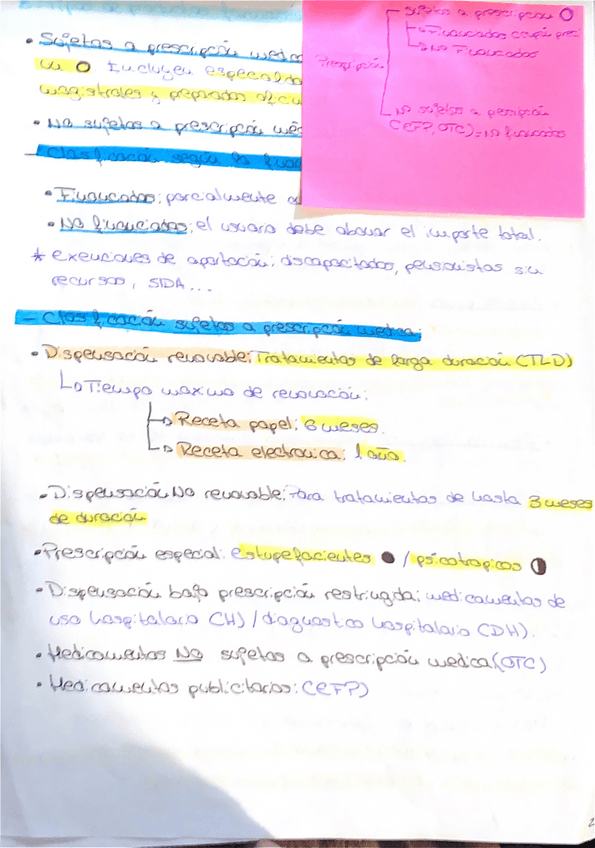 • Sujetos a prescripción médica
un O Incluyen especialida
magistrales y preparados oficin
• No sujetos a prescripción méd
- Clasificación según la financ
• Financiados: parcialmente o
• No financiados: el usuario debe abonar el importe total.
* exenciones de aportación: discapacitados, pensionistas sin
recursos, SIDA...
Prescripción
sujetos a prescripción O
Financiados
No Financiados
No sujetos a prescripción
(EFP, OTC) = No financiados
- Clasificación sujetos a prescripción medica:
• Dispensación renovable: Tratamientos de larga duración (TLD)
Tiempo maximo de renovación:
Receta papel: 6 meses.
Receta electronica: 1 año.
• Dispensación No renovable: Para tratamientos de hasta 3 meses
de duración
• Prescripción especial: estupefacientes ● / psicotropicos ◐
• Dispensación bajo prescripción restringida: medicamentos de
uso hospitalario (H) / diagnostico hospitalario (DH).
• Medicamentos No sujetos a prescripción medica (OTC)
• Medicamentos publicitarios: (EFP)
2